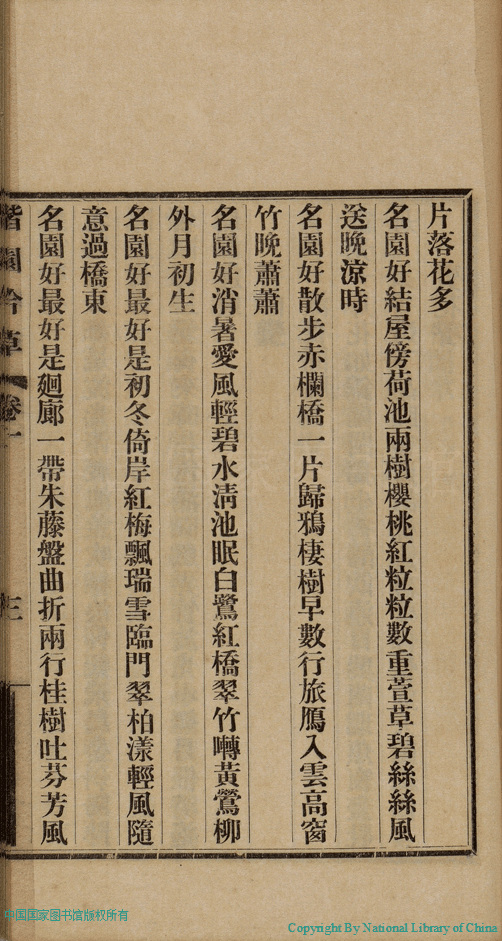 片落花多
名園好結屋傍荷池兩樹櫻桃紅粒粒數重萱草碧絲絲風
送晚涼時
名園好散步赤欄橋一片歸鴉棲樹早數行旅鴈入雲高窗
竹晚蕭蕭
名園好消暑愛風輕碧水淸池眠白鷺紅橋翠竹囀黃鶯柳
外月初生
名園好最好是初冬倚岸紅梅飄瑞雪臨門翠柏漾輕風隨
意過橋東
名園好最好是廻廊一帶朱藤盤曲折兩行桂樹吐芬芳風
園吟草 卷一
三
中国国家图书馆版权所有
Copyright By National Library of China